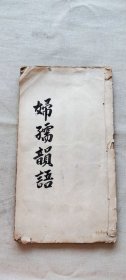 婦孺韻語